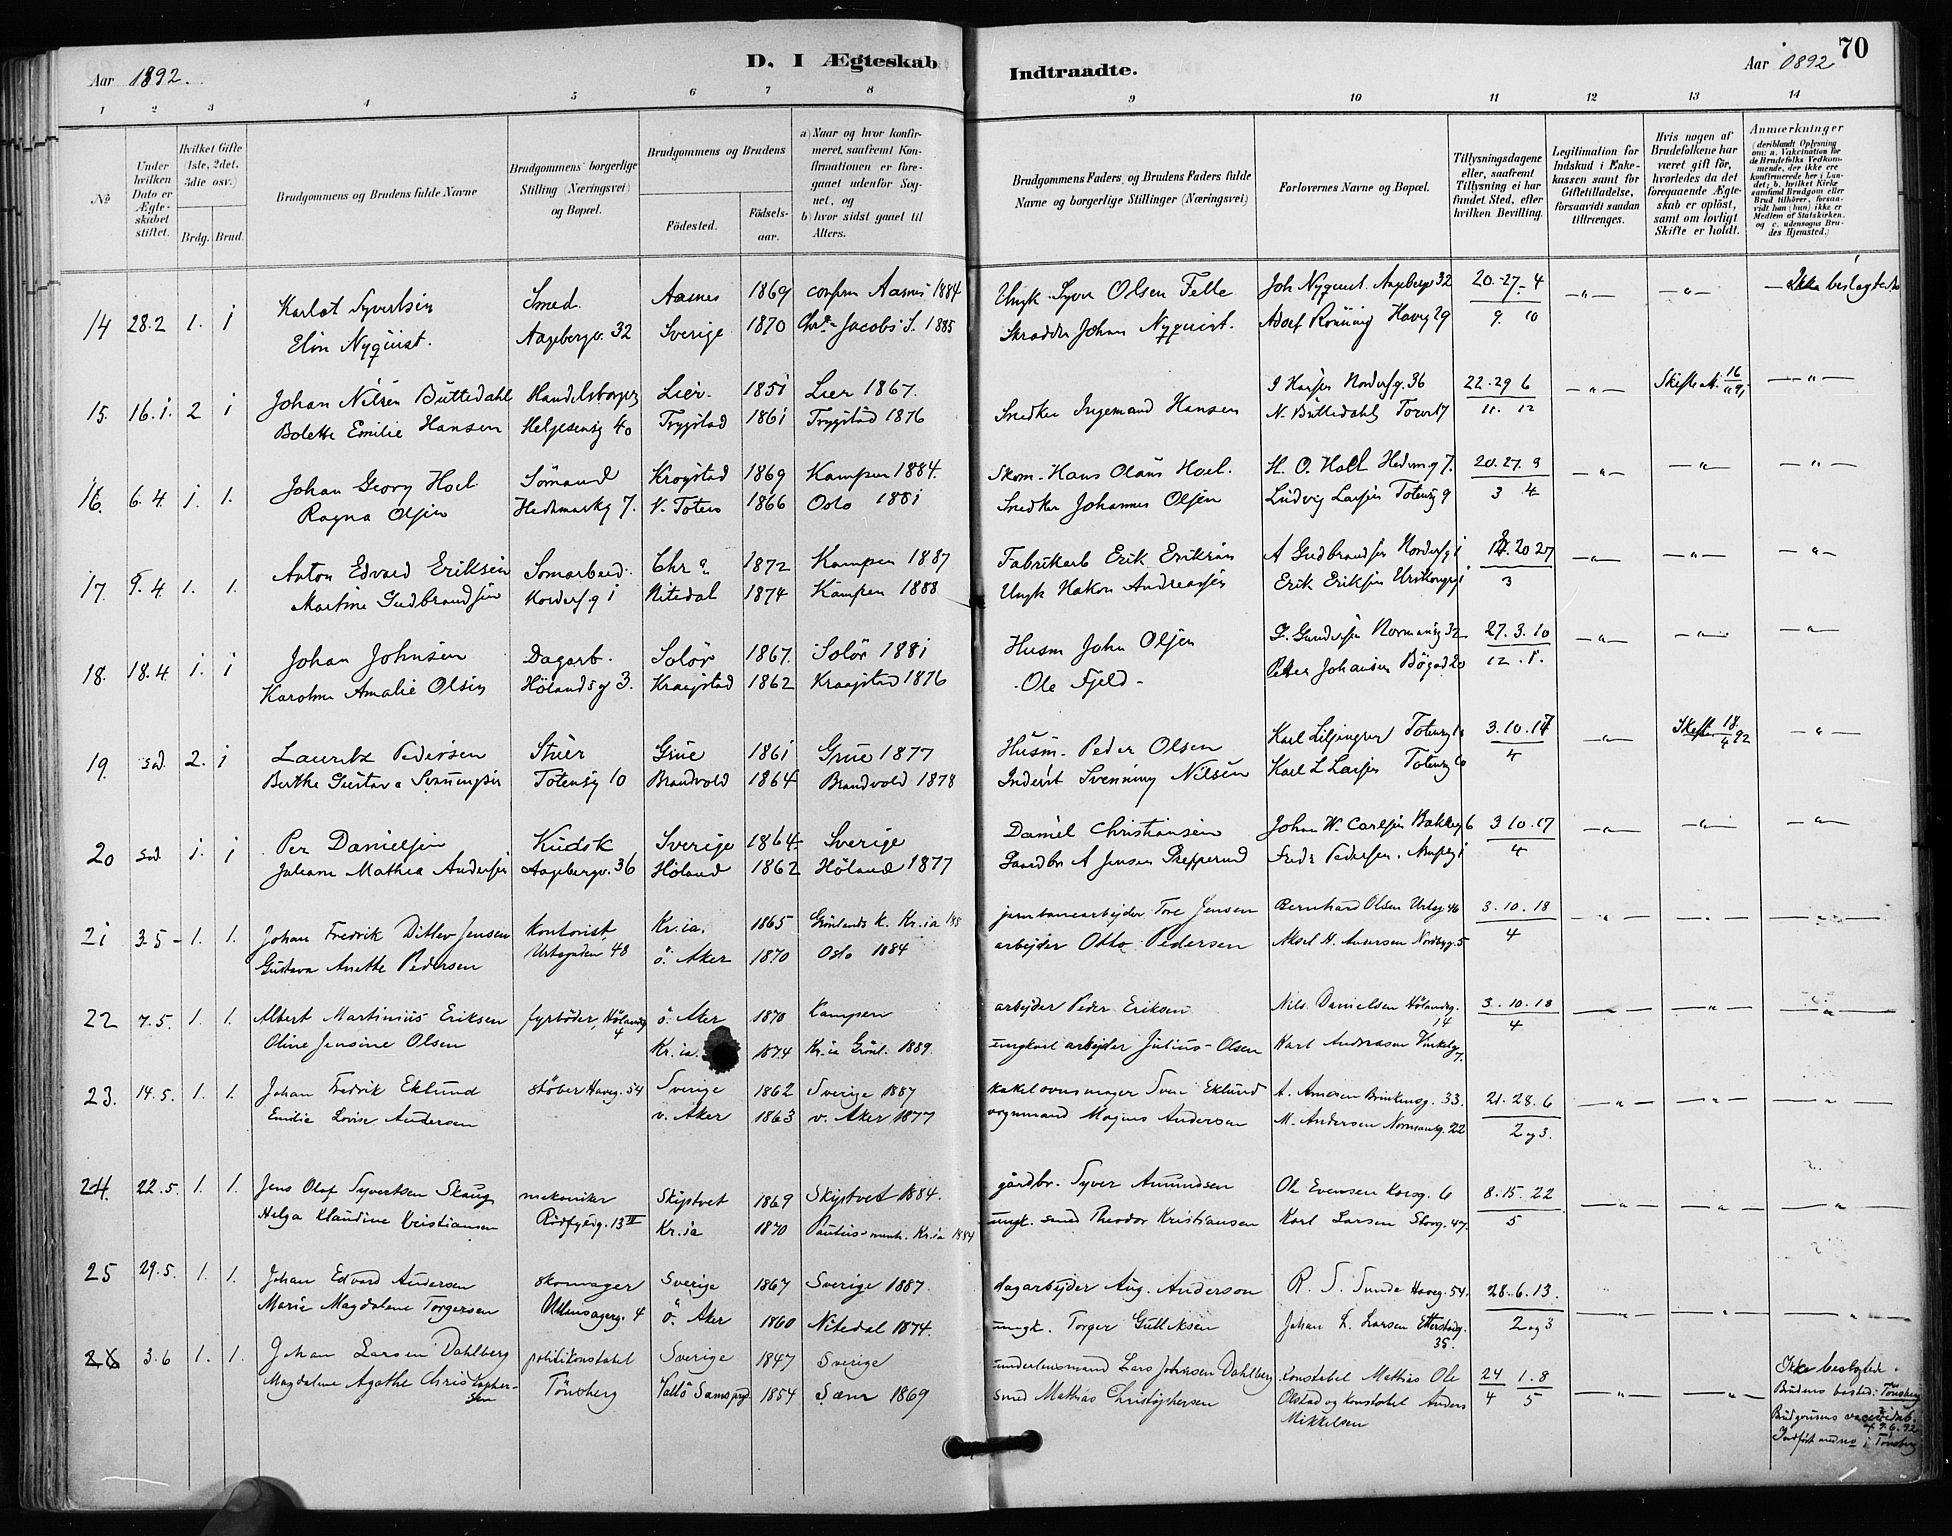 70
Aar 1892.
D. I Ægteskab Indtraadte.
Aar 1892
1 2 3 4 5 6 7 8 9 10 11 12 13 14
No
Under hvilken Dato er Ægteskabet stiftet.
Hvilket Gifte (1ste, 2det, 3die osv.)
Brdg. Brud.
Brudgommens og Brudens fulde Navne
Brudgommens borgerlige Stilling (Næringsvei) og Bopæl.
Brudgommens og Brudens
Fødested.
Fødselsaar.
a) Naar og hvor konfirmeret, saafremt Konfirmationen er foregaaet udenfor Sognet, og
b) hvor sidst gaaet til Alters.
Brudgommens Faders og Brudens Faders fulde Navne og borgerlige Stillinger (Næringsvei)
Forlovernes Navne og Bopæl.
Tillysningsdagene eller, saafremt Tillysning ei har fundet Sted, efter hvilken Bevilling.
Legitimation for Indskud i Enkekassen samt for Giftetilladelse, forsaavidt saadan tiltrænges.
Hvis nogen af Brudefolkene har været gift før, hvorledes da det foregaaende Ægteskab er opløst, samt om lovligt Skifte er holdt.
Anmærkninger (deriblandt Oplysning om: a. Vakcination for de Brudefolks Vedkommende, der ikke ere konfirmerede her i Landet; b. hvilket Kirkesamfund Brudgom eller Brud tilhører, forsaavidt han (hun) ikke er Medlem af Statskirken, og c. udensogns Brudes Hjemsted.)
14 28.2 1. 1 Smed Aasnes 1869 confirm Aasnes 1884 Joh Nyquist Aageberg 32 20-27-4 -"- -"- Ikke beslægtede
Elin Nyquist. Aagebergv. 32 Sverige 1870 Jacobs 1885 Skrædder Johan Nyquist. 9. 10
15. 16.1. 2 1 Johan Nilsen Büttedahl Handelsborger Lier. 1851 Lier 1867. 22.29 6 -"- -"-
Bolette Emilie Hansen 40 Trygstad 1861 Trygstad 1876 Snedker Ingemand Hansen N. Büttedahl 11. 12
16. 6.4 1. 1. Johan Georg Hoel Sömand Krogstad 1869 Kampen 1884. Skom. Hans Olaus Hoel. 20.27.3 -"- -"- "
Ragna Olsen Hedemarkg 7. V. Toten 1866 Oslo 1881 Snedker Johannes Olsen Ludvig Larsen Toteng 9 3 4
17. 9.4 1. 1. Anton Edvard Eriksen Chr a. 1872 Kampen 1887 Fabrikarb Erik Eriksen A Gudbrandsen 20 27 -"- -"- -"-
Martine Gudbrandsen Nitedal 1874 Kampen 1888 Ungk Hakon Andreassen Erik Eriksen 3
18. 18.4 1. 1 Johan Johnsen Dagarb. Solör 1867. Solör 1881 Husm John Olsen 27.3.10 -"- -"- -"-
Karoline Amalie Olsen Hölandsg 3. Kraagstad 1862 Kraagstad 1876 -Ole Fjeld- Petter Johansen 20
19. sad. 2. 1 Lauritz Pedersen Grue 1861 Grue 1877 Husm. Peder Olsen 3.10.17 -"- Skifte 18/4 92 -"-
Berthe Gustava Svenningsen Toteng 10 Brandvold 1864 Brandvold 1878 Inderst Svenning Nilsen Karl L Larsen Toteng 10 4
20 sad. 1. 1 Per Danielsen Kudsk Sverige 1864 Sverige Daniel Christiansen Johan W. Carlsen 6 3 10.17 -"- -"- -"-
Juliane Mathea Andersen Aagebergv. 36 Höland 1862 Höland 1877 Gaardbr A Jensen 4
21 3.5 - 1. 1. Johan Fredrik Ditlev Jensen Kontorist Kr.ia. 1865 Grönlands k. Kr.ia jernbanearbejder Tore Jensen Bernhard Olsen Urtg. 46 3.10.18 -"- -"- -"-
Gustava Anette Pedersen Urtegaten 48 ö. Aker 1870 Oslo 1884 arbejder Otto Pedersen Aksel H. Andersen Nordbyg. 5 4
22 7.5. 1. 1. Albert Martinius Eriksen fyrböder, Hölandsg 4 ö. Aker 1870 Kampen arbejder Peder Eriksen Nils Danielsen Hölandsg. 14 3.10.18 -"- -"- -"-
Oline Jensine Olsen Kr.ia. 1874 Kr.ia Grönl. 1889. ungkarl arbejder Julius Olsen Karl Andreasen Vinkelg 7. 4
23. 14.5. 1. 1. Johan Fredrik Eklund stöber Haveg. 54 Sverige 1862 Sverige 1887 kakelovnsmager Sven Eklund A. Arnesen Brinkensg. 33. 21.28.6 -"- -"- -"-
Emilie Lovise Andersen v. Aker 1863 v. Aker 1877 vognmand Magnus Andersen M. Andersen Normansg. 22 2 og 3.
24. 22.5. 1. 1. Jens Olaf Syvertsen Skaug mekaniker Skiptvet 1869 Skiptvet 1884. gårdbr. Syver Amundsen Ole Evensen Korsg. 6 8.15.22 -"- -"- -"-
Helga Klaudine Kristiansen Rödfyldg. 13 II Kr.ia 1870 Paulus menh. Kr.ia 1884 ungk. smed Theodor Kristiansen Karl Larsen Storg. 47. 5
25 29.5. 1. 1. Johan Edvard Andersen skomager Sverige 1867 Sverige 1887. dagarbejder Aug. Anderson R. S. Sunde Haveg. 54. 28.6.13. -"- -"- -"-
Marie Magdalene Torgersen 4 ö. Aker 1860 Nitedal 1874. ungk. Torger Gulliksen Johan L. Larsen Etterstadg. 35. 2 og 3
26 3.6 1. 1. Johan Larsen Dahlberg politikonstabel Sverige 1847 Sverige Lars Johnsen Dahlberg Konstabel Mathias Ole 24/4 1.8/5 -"- -"- Ikke beslegted.
Magdalene Agathe Christophersen Tönsberg 1854 Sæm 1869 smed Mathias Christophersen Olstad og konstabel Anders Mikkelsen Brudens bosted: Tönsberg
Indfört i Tönsberg